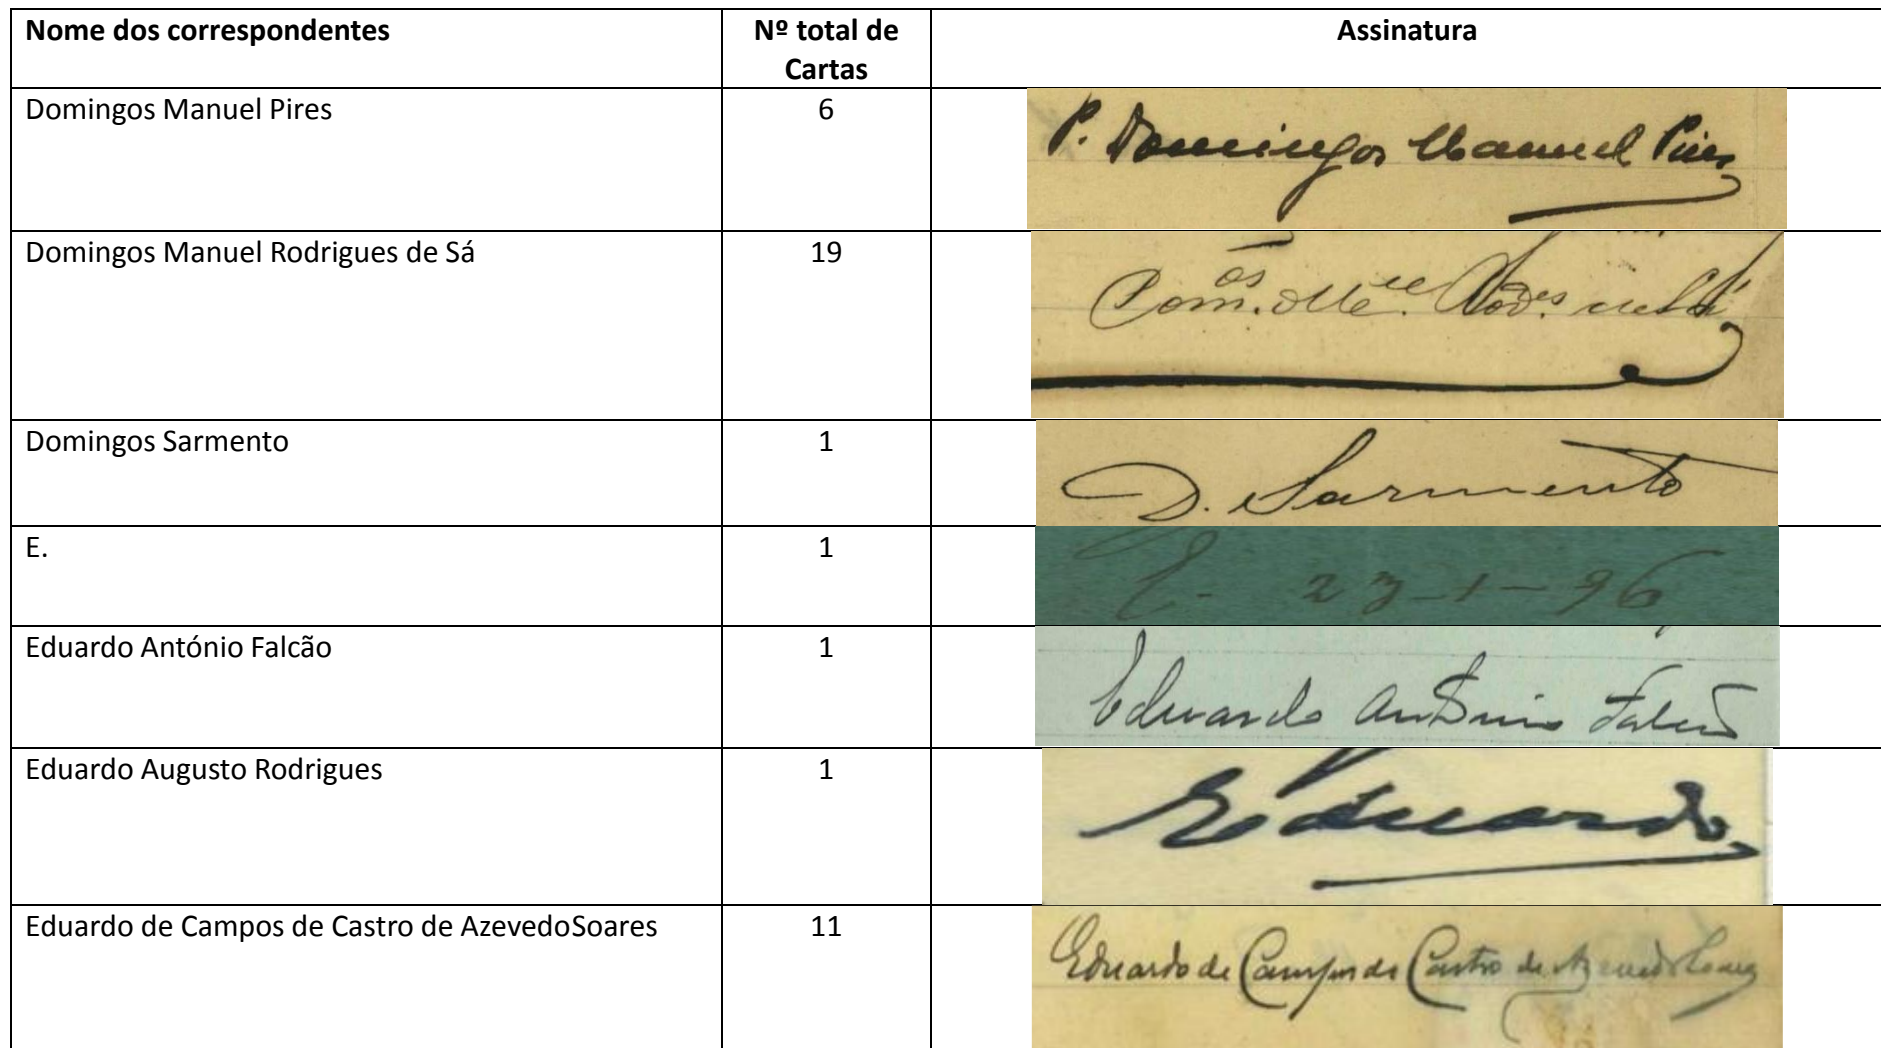 Nome dos correspondentes
Nº total de
Cartas
Assinatura
Domingos Manuel Pires
6
P. Domingos Manuel Pires
Domingos Manuel Rodrigues de Sá
19
Dom.os Me.el Rod.es de Sá
Domingos Sarmento
1
D. Sarmento
E.
1
E. 27-1-96
Eduardo António Falcão
1
Eduardo António Falcão
Eduardo Augusto Rodrigues
1
Eduardo
Eduardo de Campos de Castro de AzevedoSoares
11
Eduardo de Campos de Castro de Azevedo Soares